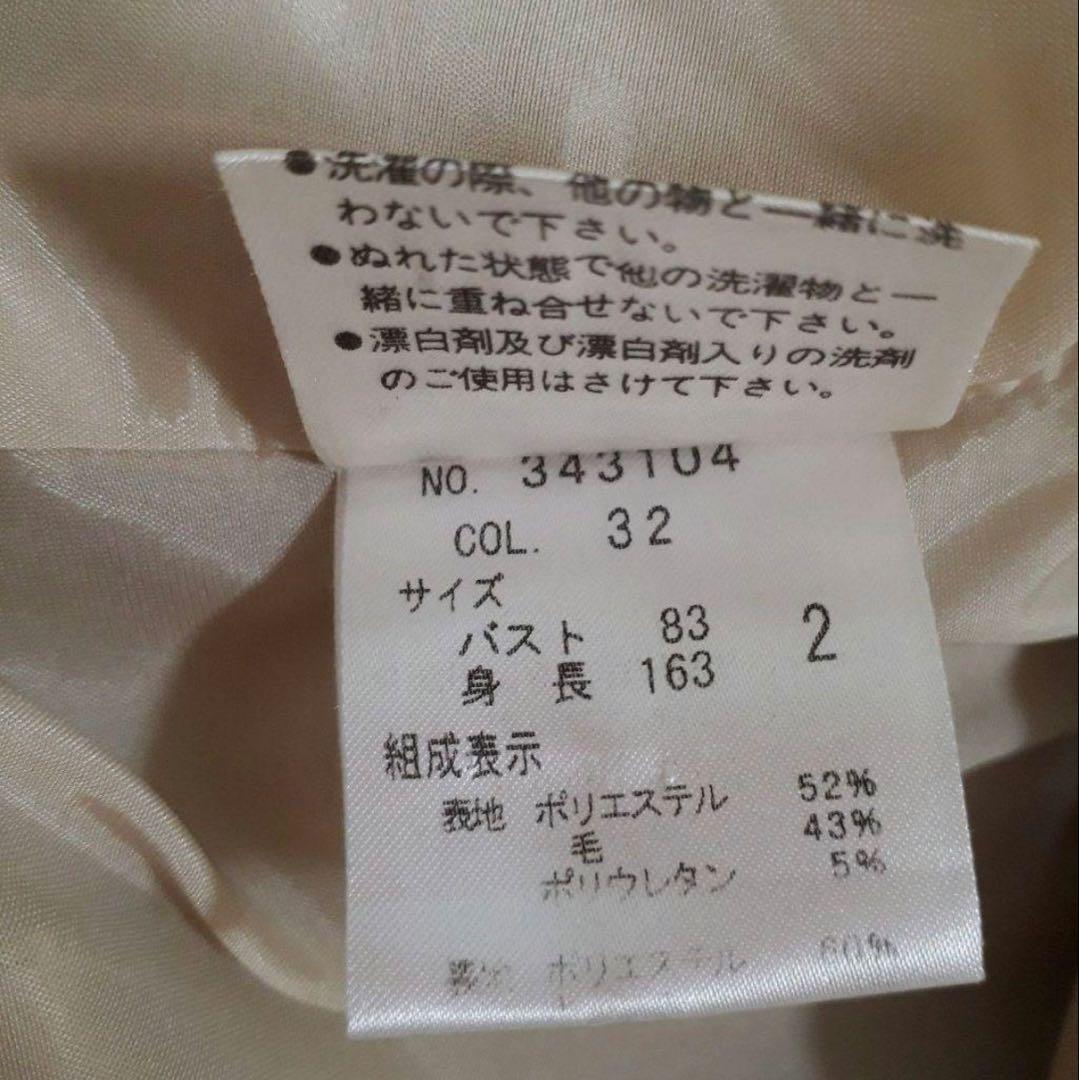 ●洗濯の際、他の物と一緒に洗
わないで下さい。
●ぬれた状態で他の洗濯物と一
緒に重ね合せないで下さい。
●漂白剤及び漂白剤入りの洗剤
のご使用はさけて下さい。
NO. 343104
COL. 32
サイズ
バスト 83 2
身 長 163
組成表示
表地 ポリエステル 52%
毛 43%
ポリウレタン 5%
ポリエステル 60%